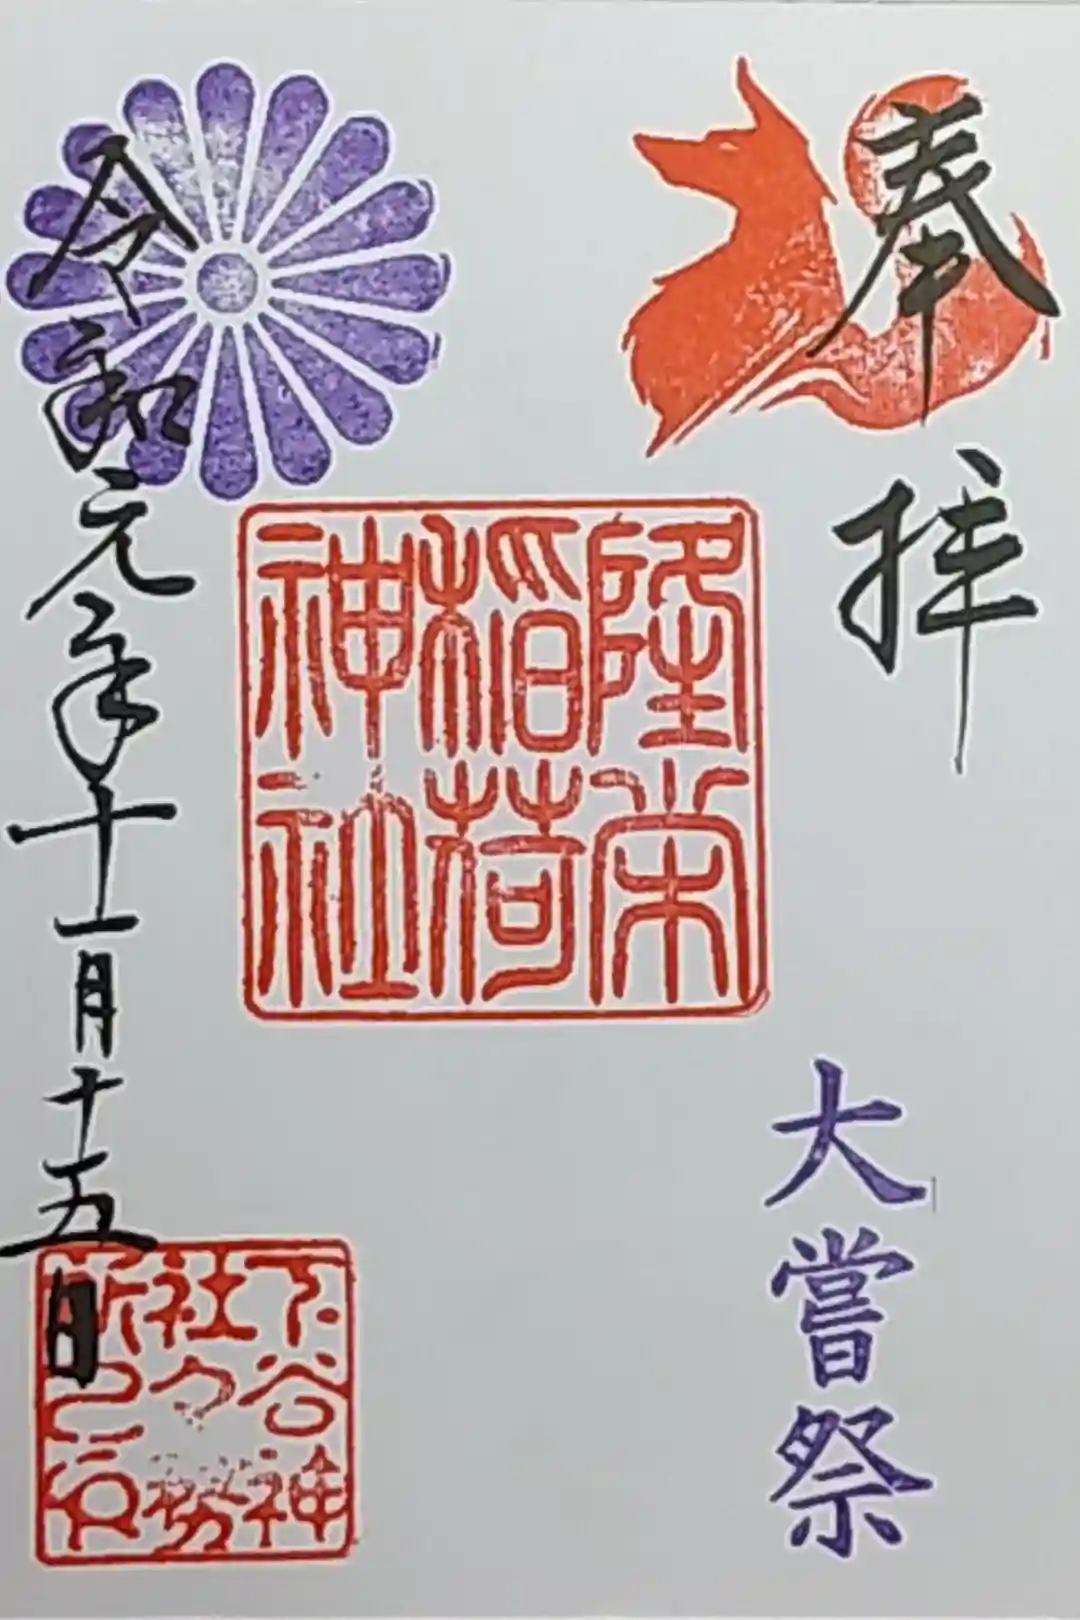 奉拝
大嘗祭
隆栄
稲荷
神社
令和元年十一月十五日
下谷神
社々務
所之印